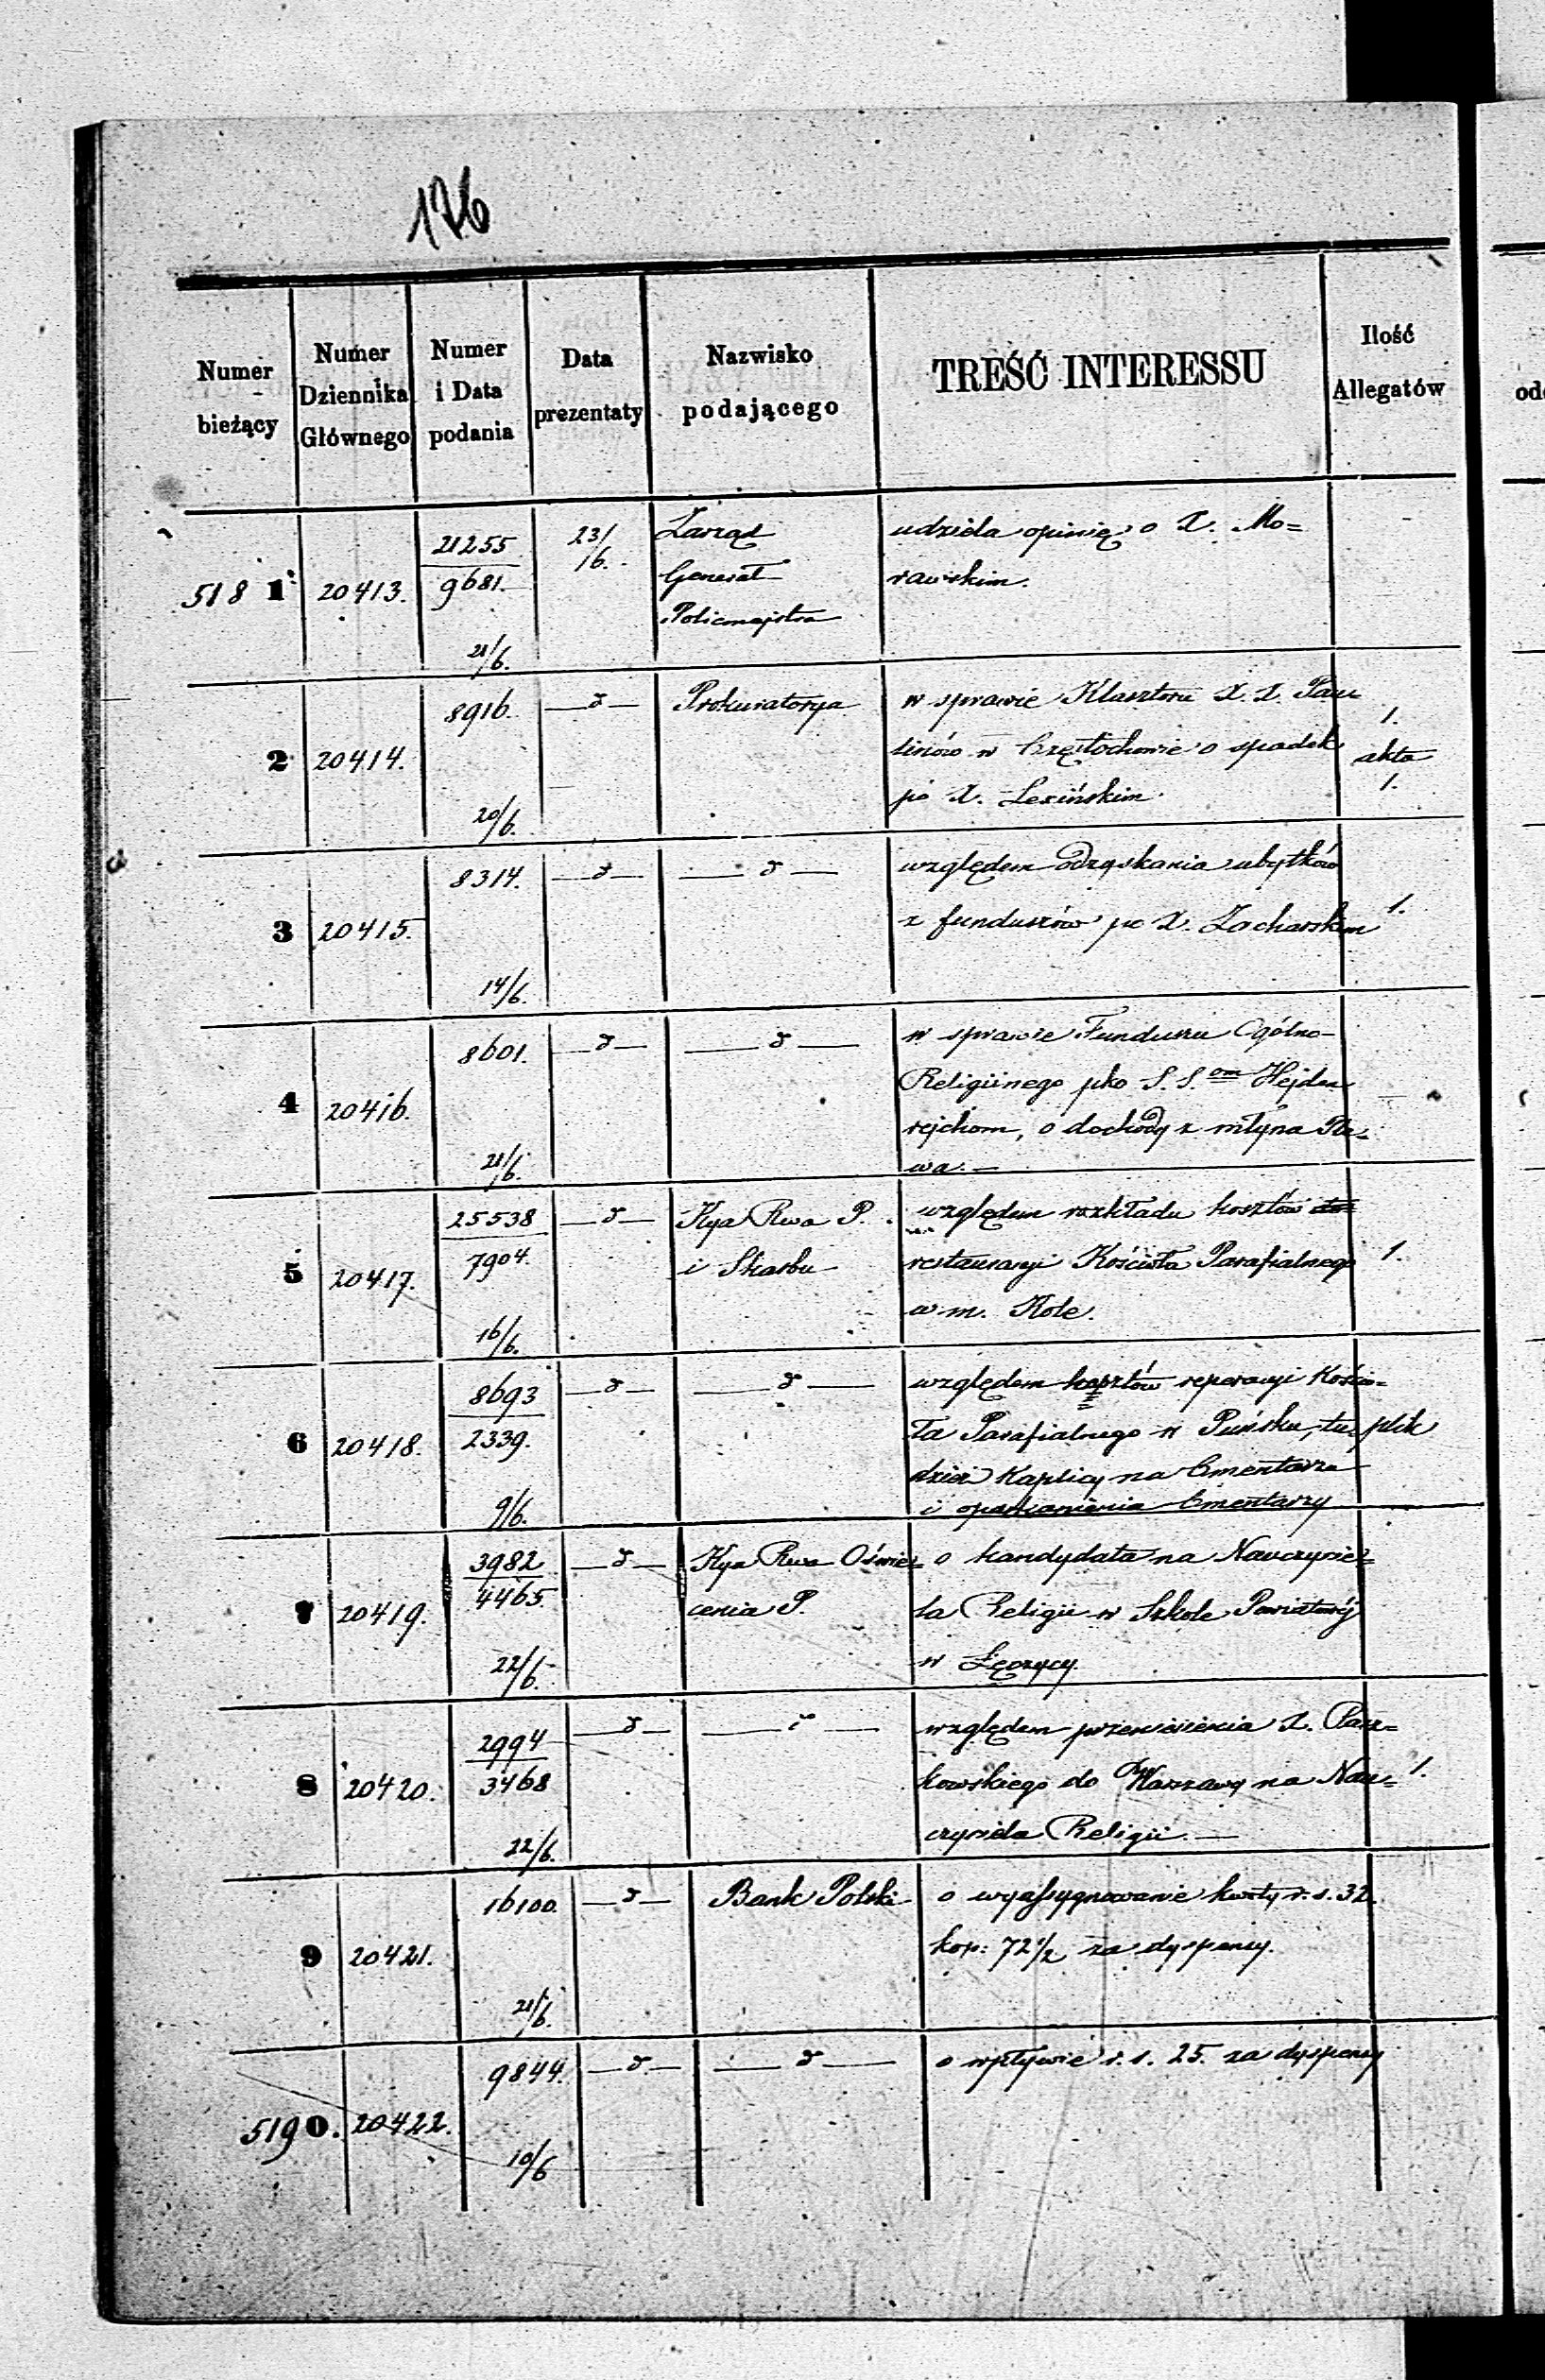 176
Numer bieżący
Numer Dziennika Głównego
Numer i Data podania
Data prezentaty
Nazwisko podającego
TREŚĆ INTERESSU
Ilość Allegatów
5181 20413. 21255 23/
9681. 16.
21/6.
Zarząd
Generał
Policmajstra
udziela opinię o X. Mo=
rawskim.
2 20414. 8916. — d —
20/6.
Prokuratorya
w sprawie Klasztoru X. X. Pau
linów w Częstochowie o spadek
po X. Lexińskim.
1.
akta
1.
3 20415. 8314. — d — — d —
14/6.
względem odzyskania ubytków
z funduszów po X. Zacharskim 1.
4 20416. 8601. — d — — d —
21/6.
w sprawie Funduszu Ogólno-
Religiinego pko S. S.om Hejden
rejchom, o dochody z młyna
wa. —
5 20417. 25538 — d —
7904.
16/6.
Kya Rwa P.
i Skarbu
względem rozkładu kosztów
restauracyi Kościoła Parafialnego 1.
w m. Kole.
6 20418. 8693 — d — — d —
2339.
9/6.
względem kosztów reperacyi Kościo=
ła Parafialnego w Puńsku, tu plik
dzież Kaplicy na Cmentarzu
i oparkanienia Cmentarzy
7 20419. 3982 — d —
4465.
22/6.
Kya Rwa Oświe=
cenia P.
o kandydata na Nauczycie=
la Religii w Szkole Powiatowéj
w Łęczycy
8 20420. 2994 — d —
3468
22/6.
względem przeniesienia X. Pasz=
kowskiego do Warszawy na Nau= 1.
czyciela Religii. —
9 20421. 16100. — d —
21/6.
Bank Polski
o wyassygnowanie kwoty r. s. 32.
kop: 72 1/2 za dyspensy.
5190. 20422. 9844. — d — — d —
10/6
o wpływie r. s. 25. za dyspensy